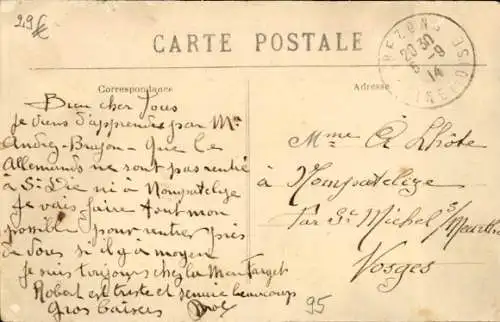 29
CARTE POSTALE
Correspondance
Adresse
20 30
5 - 9
14
Bien cher Tous
je viens d'apprendre par Mr
Andrez-Brajon - que les
Allemands ne sont pas rentré
à St Die ni à Nompatelize
Je vais faire tout mon
possible pour rentrer près
de vous si il y a moyen
je suis toujours chez la Mon
Robert est triste et s'ennuie beaucoup
Gros baisers
Mme A Lhôte
à Nompatelize
Par St Michel s/ Meurthe
Vosges
95